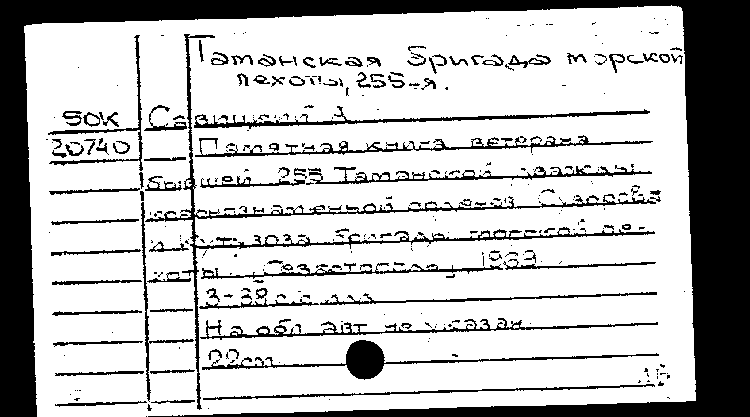 Таманская бригада морской
пехоты, 255-я.
SOK Савицкий А
20740 Памятная книга ветерана
бывшей 255 Таманской дважды
краснознаменной орденов Суворова
и Кутузова бригады морской пе-
хоты. [Севастополь], 1969
3-38 с. с илл
На обл авт не указан.
22 cm